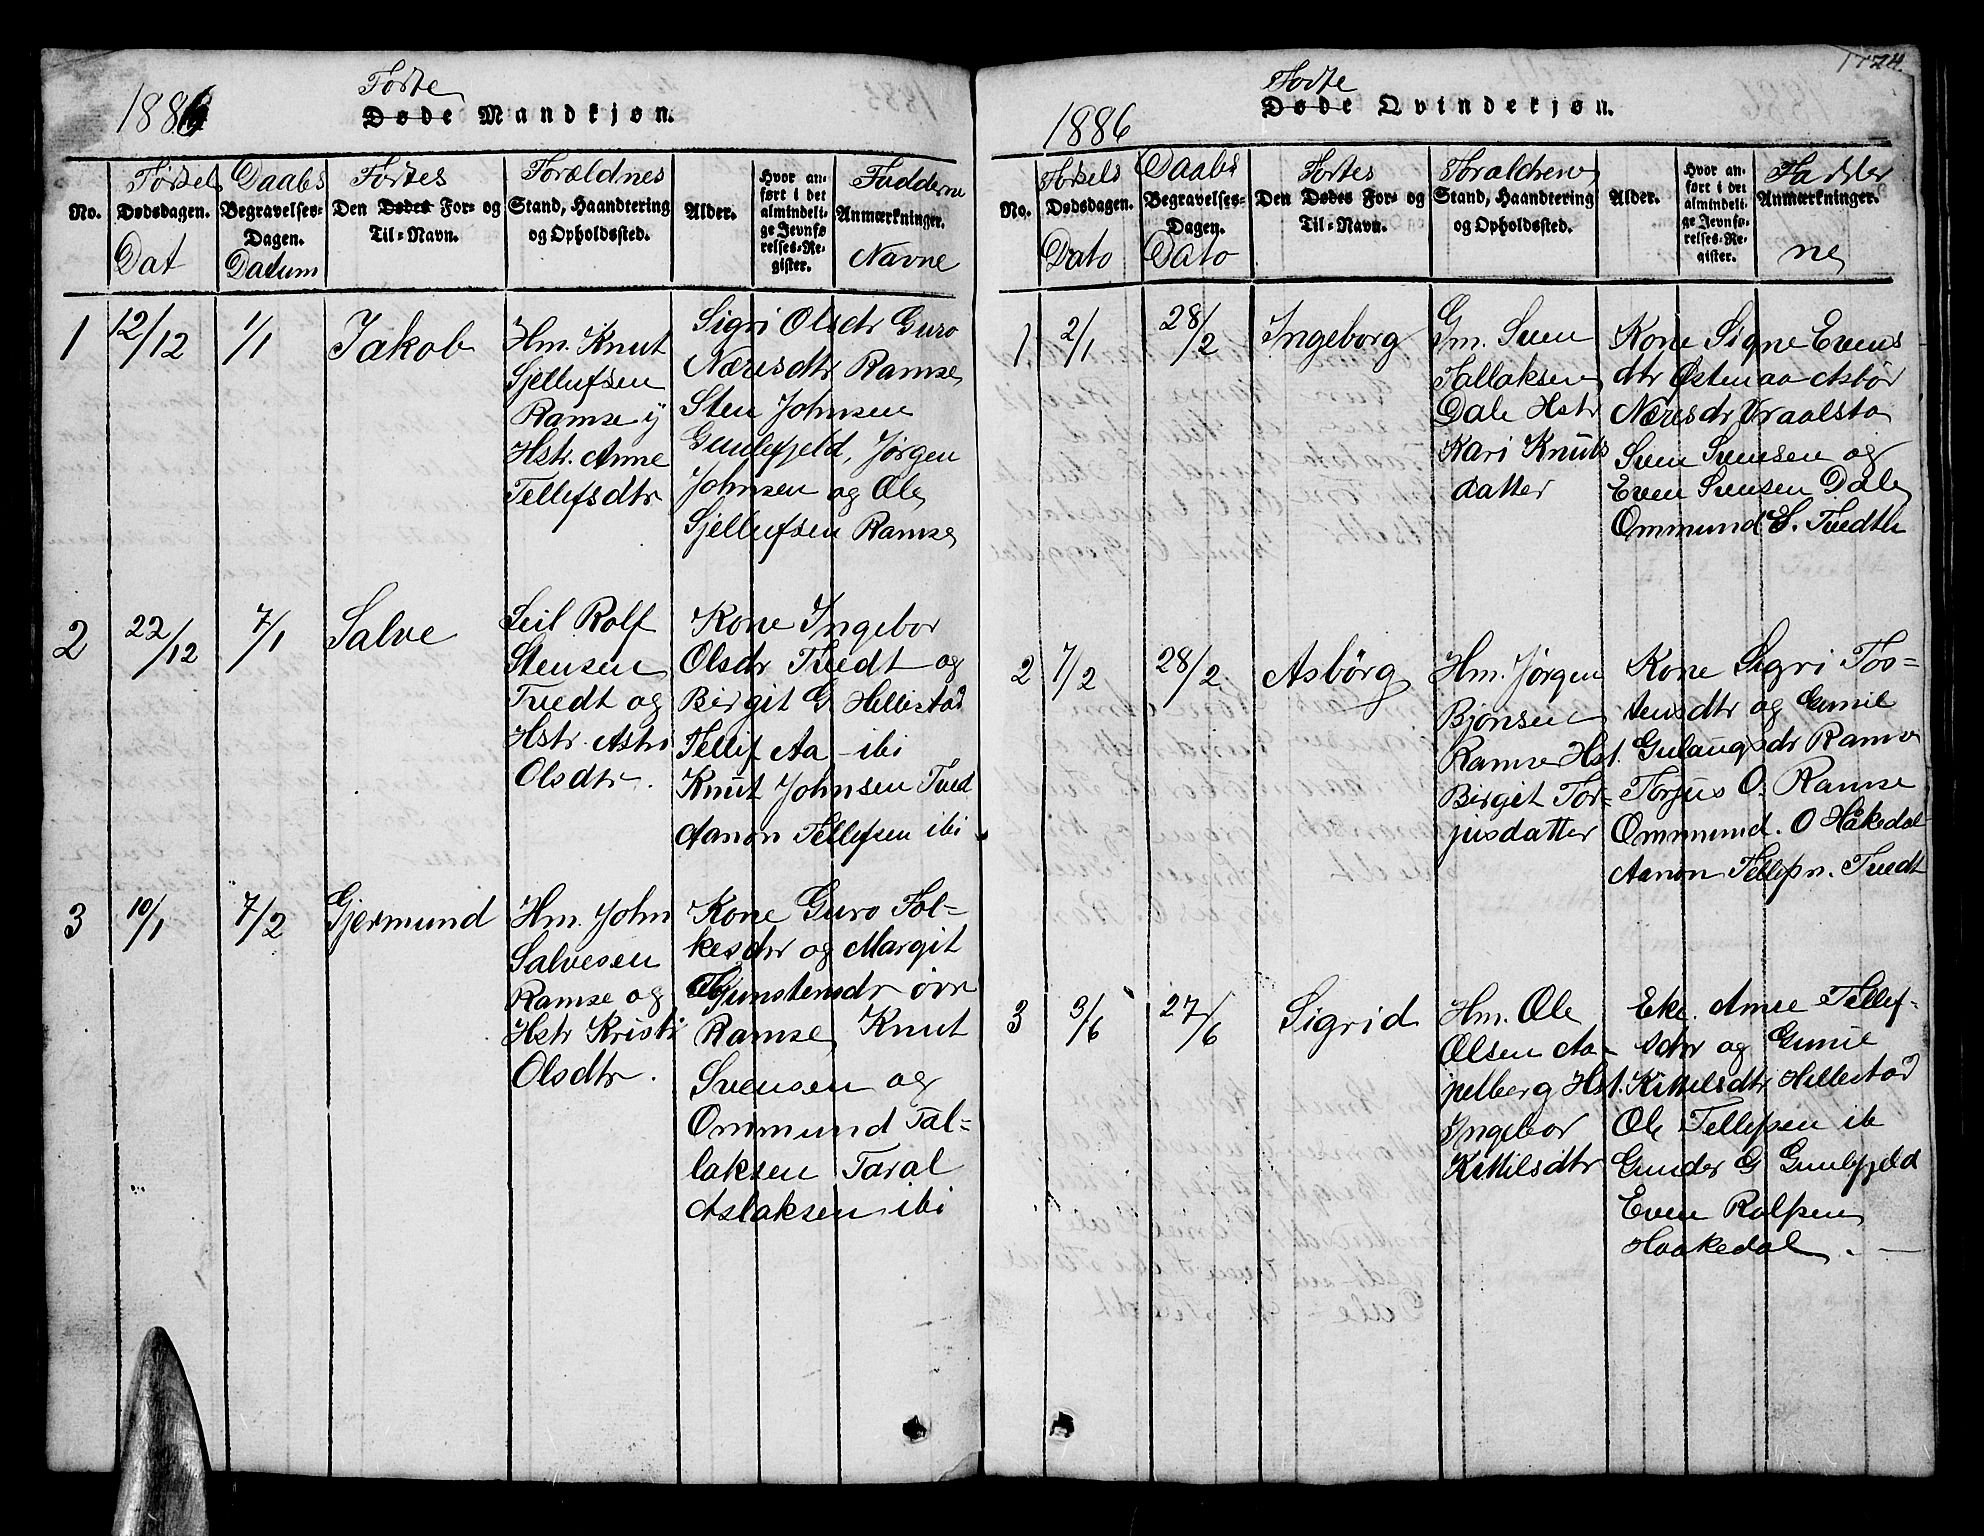 1886
Fødte
Døde Mandkjøn.
No.
Fødsels
Dødsdagen.
Dat
Daabs
Begravelses-
Dagen.
Datum
Fødtes
Den Dødes For- og
Til-Navn.
Forældnes
Stand, Haandtering
og Opholdssted.
Alder.
Hvor an-
ført i det
almindeli-
ge Jevnfø-
relses-Re-
gister.
Fadderne
Anmærkninger.
Navne
1
12/12
1/1
Jakob
Hm. Knut
Gjellufsen
Ramse ÿ
Hstr. Anne
Tellefsdtr
Sigri Olsdr Guro
Næresdtr Ramse
Sten Johnsen
Gunlefjeld, Jørgen
Johnsen og Ole
Gjellufsen Ramse
2
22/12
7/1
Salve
Leil Rolf
Stensen
Tvedt og
Hstr. Astri
Olsdtr.
Kone Ingebor
Olsdr Tvedt og
Birgit G Hillestad
Tellif Aa - ibi
Knut Johnsen Tved
Aanon Tellefsen ibi
3
10/1
7/2
Gjermund
Hm. John
Salvesen
Ramse og
Hstr Kristi
Olsdtr.
Kone Guro Fol-
kesdtr og Margit
Gjunstensdr øvr
Ramse, Knut
Svensen og
Ommund Tal-
laksen Taral
Aslaksen ibi
1724.
1886
Fødte
Døde Qvindekjøn.
No.
Fødsels
Dødsdagen.
Dato
Daabs
Begravelses-
Dagen.
Dato
Fødtes
Den Dødes For- og
Til-Navn.
Forældrene
Stand, Haandtering
og Opholdssted.
Alder.
Hvor an-
ført i det
almindeli-
ge Jevnfø-
relses-Re-
gister.
Fadder
Anmærkninger.
ne
1
2/1
28/2
Ingeborg
Gm. Sven
Tallaksen
Dale Hstr
Kari Knuts
datter
Kone Signe Evens
dtr Østenaa Asbør
Næresdr Vraalsto
Sven Svensen og
Even Svensen Dale
Ommund S. Tvedtli
2
7/2
28/2
Asbørg
Hm. Jørgen
Bjønsen
Ramse Hst.
Birgit Tor-
jusdatter
Kone Sigri Tos-
tensdtr og Gunil
Gulaugsdr Ramse
Torjus O. Ramse
Ommund. O Håkedal
Aanon Tellefsn. Tvedt
3
3/6
27/6
Sigrid
Hm. Ole
Olsen Aa-
pelberg Hst.
Ingebor
Kittilsdtr
Eke. Anne Tellef-
sdtr og Gunil
Kittilsdtr Hillestad
Ole Tellefsen ib
Gunder G Gunlefjeld
Even Rolfsen
Haakedal. -